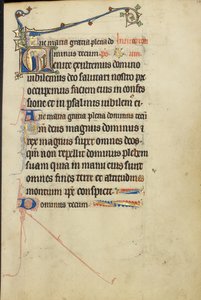 Aue maria gracia plena do
minus tecum
Uenite exultemus domino
iubilemus deo salutari nostro pre
occupemus faciem eius in confes
sione et in psalmis iubilem ei
Aue maria gracia plena dominus tecum
Qm deus magnus dominus et
rex magnus super omnes deos
qm non repellit dominus plebem
suam quia in manu eius sunt
omnes fines terre et altitudines
montium ipse conspicit
Dominus tecum